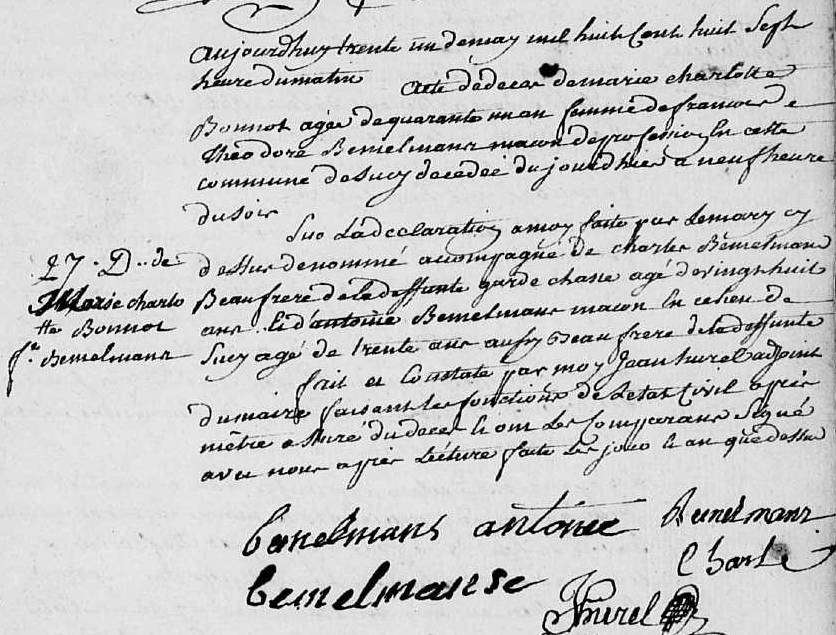 aujourdhuy trente un de may mil huit Cent huit Sept
heure du matin acte de deces de marie charlotte
Bonnot agée de quarante un an femme de francois
Theodore Bemelmans macon de profession En cette
commune de Sucy decedée du jourdhier a neuf heure
du soir
Sur La declaration a moy faite par Le mary cy
dessus denommé accompagné de charles Bemelmans
Beaufrere de la deffunte garde chasse agé de vingt huit
ans. Et d'antoine Bemelmans macon En ce lieu de
Sucy agé de trente ans aussy Beaufrere de la deffunte
fait et Constaté par moy Jean hurel adjoint
du maire faisant Les fonctions de Letat Civil apres
mêtre assuré du deces Et ont Les Comparans Signé
avec nous apres Lecture faite Les jour Et an que dessus
27. D.. de
Marie charlo
tte Bonnot
fe. Bemelmans
bemelmans antoine Bemelmans
Charle
bemelmanse
JHurel